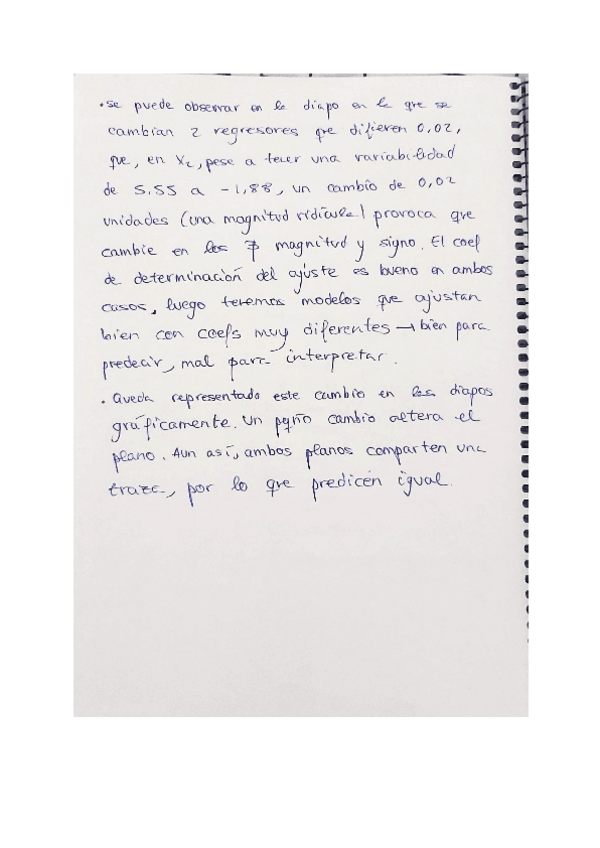 • se puede observar en la diapo en la que se
cambian 2 regresores que difieren 0,02,
que, en X2, pese a tener una variabilidad
de 5.55 a -1,88, un cambio de 0,02
unidades (una magnitud ridícula) provoca que
cambie en los magnitud y signo. El coef
de determinación del ajuste es bueno en ambos
casos, luego tenemos modelos que ajustan
bien con coefs muy diferentes → bien para
predecir, mal para interpretar.
• Queda representado este cambio en las diapos
gráficamente. Un pqño cambio altera el
plano. Aun así, ambos planos comparten una
traza, por lo que predicen igual.